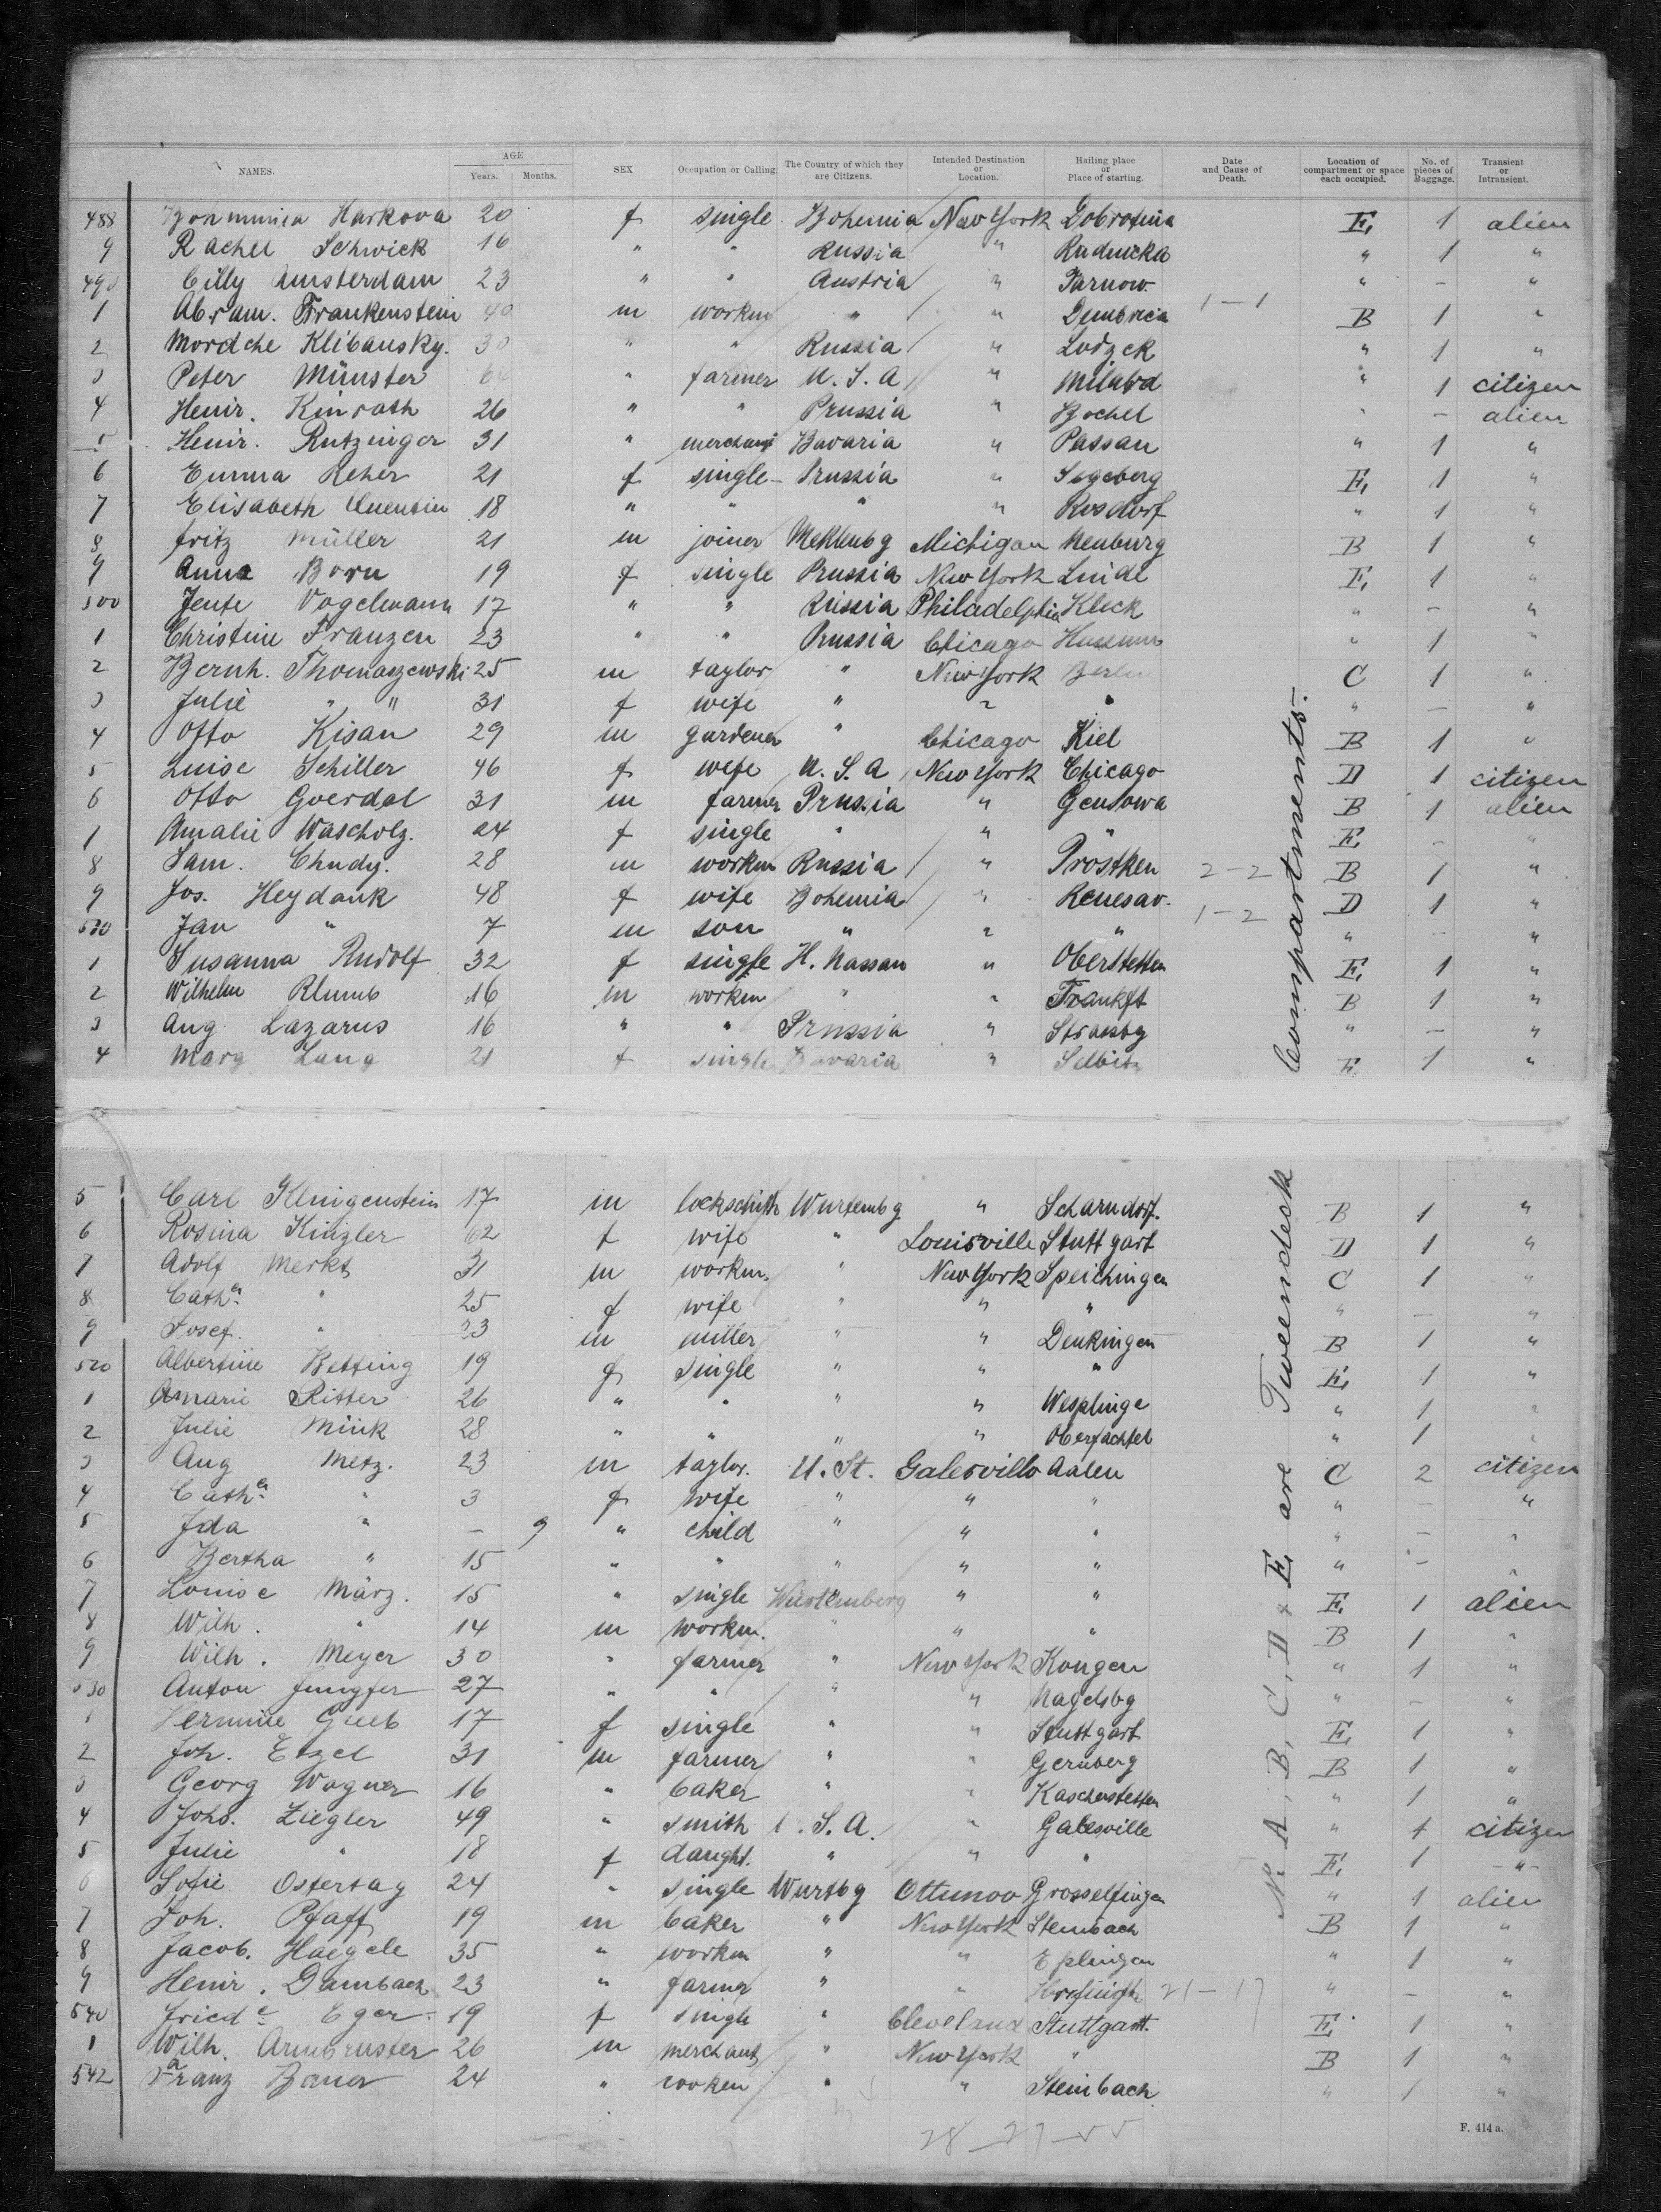 NAMES. AGE Years. Months. SEX Occupation or Calling. The Country of which they are Citizens. Intended Destination or Location. Hailing place or Place of starting. Date and Cause of Death. Location of compartment or space each occupied. No. of pieces of Baggage. Transient or Intransient.
488 Harkova 20 f single Bohemia New York E 1 alien
9 Rachel Schwick 16 " " Russia " Rudnicka " 1 "
490 Cilly Amsterdam 23 " " Austria " Tarnow. " - "
1 Abram. Frankenstein 40 m workm " " Dembica 1-1 B 1 "
2 Mordche Klibansky. 30 " " Russia " Lodzck " 1 "
3 Peter Münster " farmer U. S. A " " 1 citizen
4 Heinr. Kinrath 26 " " Prussia " Bochel " - alien
5 Heinr. Rutzinger 31 " merchant Bavaria " Passau " 1 "
6 Emma Reher 21 f single - Prussia " Segeberg E 1 "
7 Elisabeth Quentin 18 " " " " Rosdorf " 1 "
8 Fritz Müller 21 m joiner Meklenbg Michigan Neuburg B 1 "
9 Anna Born 19 f single Prussia New York E 1 "
500 Jente Vogelmann 17 " " Russia Philadelphia Kleck " - "
1 Christine Franzen 23 " " Prussia Chicago Husum " 1 "
2 Bernh. Thomaszewski 25 m taylor " New York Berlin C 1 "
3 Julie " " 31 f wife " " " " - "
4 Otto Kisan 29 m gardener " Chicago Kiel B 1 "
5 Luise Schiller 46 f wife U. S. A New York Chicago D 1 citizen
6 Otto Goerdal 31 m farmer Prussia " B 1 alien
Amalie Wascholz. 24 f single " " " E - "
8 Sam. Chudy. 28 m workm Russia " Prostken 2-2 B 1 "
9 Jos. Heydank 48 f wife Bohemia " Renesav. 1-2 D 1 "
Jan " 7 m son " " " " - "
1 Susanna Rudolf 32 f single H. Nassau " Oberstetten E 1 "
2 Wilhelm 16 m workm " " Frankft B 1 "
3 Aug. Lazarus 16 " " Prussia " Strassbg " - "
4 Marg Lang 21 f single Bavaria " Selbitz E 1 "
5 Carl Klingenstein 17 m lockschith Wurtembg " Scharndorf. B 1 "
6 Rosina Kinzler 62 f wife " Louisville Stuttgart D 1 "
7 Adolf Merkt 31 m workm. " New York Speichingen C 1 "
8 Catha " 25 f wife " " " " - "
9 Josef. " 23 m miller " " Denkingen B 1 "
520 Albertine Betting 19 f single " " " E 1 "
1 Amarie Ritter 26 " " " " Wesplinge " 1 "
2 Julie Mink 28 " " " " " 1 "
3 Aug Metz. 23 m taylor. U. St. Galesville Aalen C 2 citizen
4 Catha " 3 f wife " " " " - "
5 Ida " - 9 " child " " " " - "
6 Bertha " 15 " " " " " " - "
7 Louise März. 15 " single Wurtemberg " " E 1 alien
8 Wilh. " 14 m workm. " " " B 1 "
9 Wilh. Meyer 30 " farmer " New York Kongen " 1 "
530 Anton Jungfer 27 " " " " Nagelsbg " - "
1 Hermine 17 f single " " Stuttgart E 1 "
2 Joh. Etzel 31 m farmer " " Gernberg B 1 "
3 Georg Wagner 16 " baker " " " 1 "
4 Johs. Ziegler 49 " smith U. S. A. " Galesville " 1 citizen
5 Julie " 18 f daught. " " " E 1 -"-
6 Sofie Ostertag 24 " single Wurtbg Grosselfingen " 1 alien
7 Joh. Pfaff 19 m baker " New York Steinbach B 1 "
8 Jacob. Haegele 35 " workm " " " 1 "
9 Heinr. Dambach 23 " farmer " " 21-17 " - "
540 Friede Eger 19 f single " Cleveland Stuttgart. E 1 "
1 Wilh. Armbruster 26 m merchant " New York " B 1 "
542 Franz Bauer 24 " " " Steinbach " 1 "
No. A, B, C, D & E are Tweendeck Compartments.
F. 414 a.